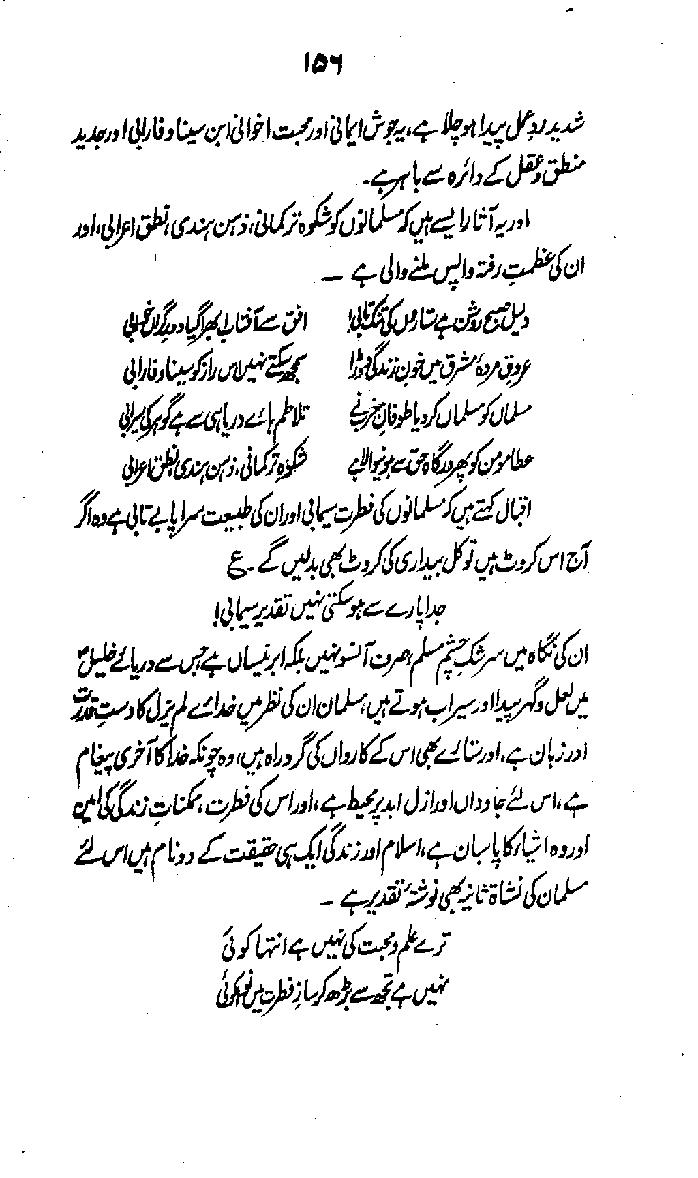 ۱۵۶
شدید ردِ عمل پیدا ہو چلا ہے، یہ جوش ایمانی اور محبت اخوانی ابن سینا و فارابی اور جدید
منطق و عقل کے دائرہ سے باہر ہے۔
اور یہ آثار ایسے ہیں کہ مسلمانوں کو شکوہ ترکمانی، ذہن ہندی، نطق اعرابی، اور
ان کی عظمتِ رفتہ واپس ملنے والی ہے ۔
دلیل صبح روشن ہے ستاروں کی تنک تابی! افق سے آفتاب ابھرا گیا دورِ گراں خوابی
عروق مردۂ مشرق میں خون زندگی دوڑا سمجھ سکتے نہیں اس راز کو سینا و فارابی
مسلماں کو مسلماں کر دیا طوفانِ مغرب نے تلاطم ہائے دریا ہی سے ہے گوہر کی سیرابی
عطا مومن کو پھر درگاہ حق سے ہونیوالا ہے شکوہ ترکمانی، ذہن ہندی، نطق اعرابی
اقبال کہتے ہیں کہ مسلمانوں کی فطرت سیمابی اور ان کی طبیعت سراپا بے تابی ہے وہ اگر
آج اس کروٹ ہیں تو کل بیداری کی کروٹ بھی بدلیں گے ۔ ع
جدا پارے سے ہو سکتی نہیں تقدیر سیمابی!
ان کی نگاہ میں سرشکِ چشم مسلم صرف آنسو نہیں بلکہ ابر نیساں ہے جس سے دریائے خلیلؑ
میں لعل و گہر پیدا اور سیراب ہوتے ہیں، مسلمان ان کی نظر میں خدائے لم یزل کا دستِ قدرت
اور زبان ہے، اور ستارے بھی اس کے کارواں کی گرد راہ ہیں، وہ چونکہ خدا کا آخری پیغام
ہے، اس لئے جاوداں اور ازل ابد پر محیط ہے، اور اس کی فطرت، ممکناتِ زندگی کی امین
اور وہ اشیاء کا پاسبان ہے، اسلام اور زندگی ایک ہی حقیقت کے دو نام ہیں اس لئے
مسلمان کی نشاۃ ثانیہ بھی نوشتۂ تقدیر ہے ۔
ترے علم و محبت کی نہیں ہے انتہا کوئی
نہیں ہے تجھ سے بڑھ کر سازِ فطرت میں نوا کوئی